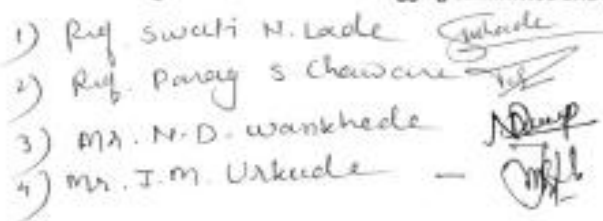 1) Prof. Swati N. Lade
2) Prof. Parag S Chaware
3) Mr. N.D. wankhede
4) Mr. J.M. Urkude -